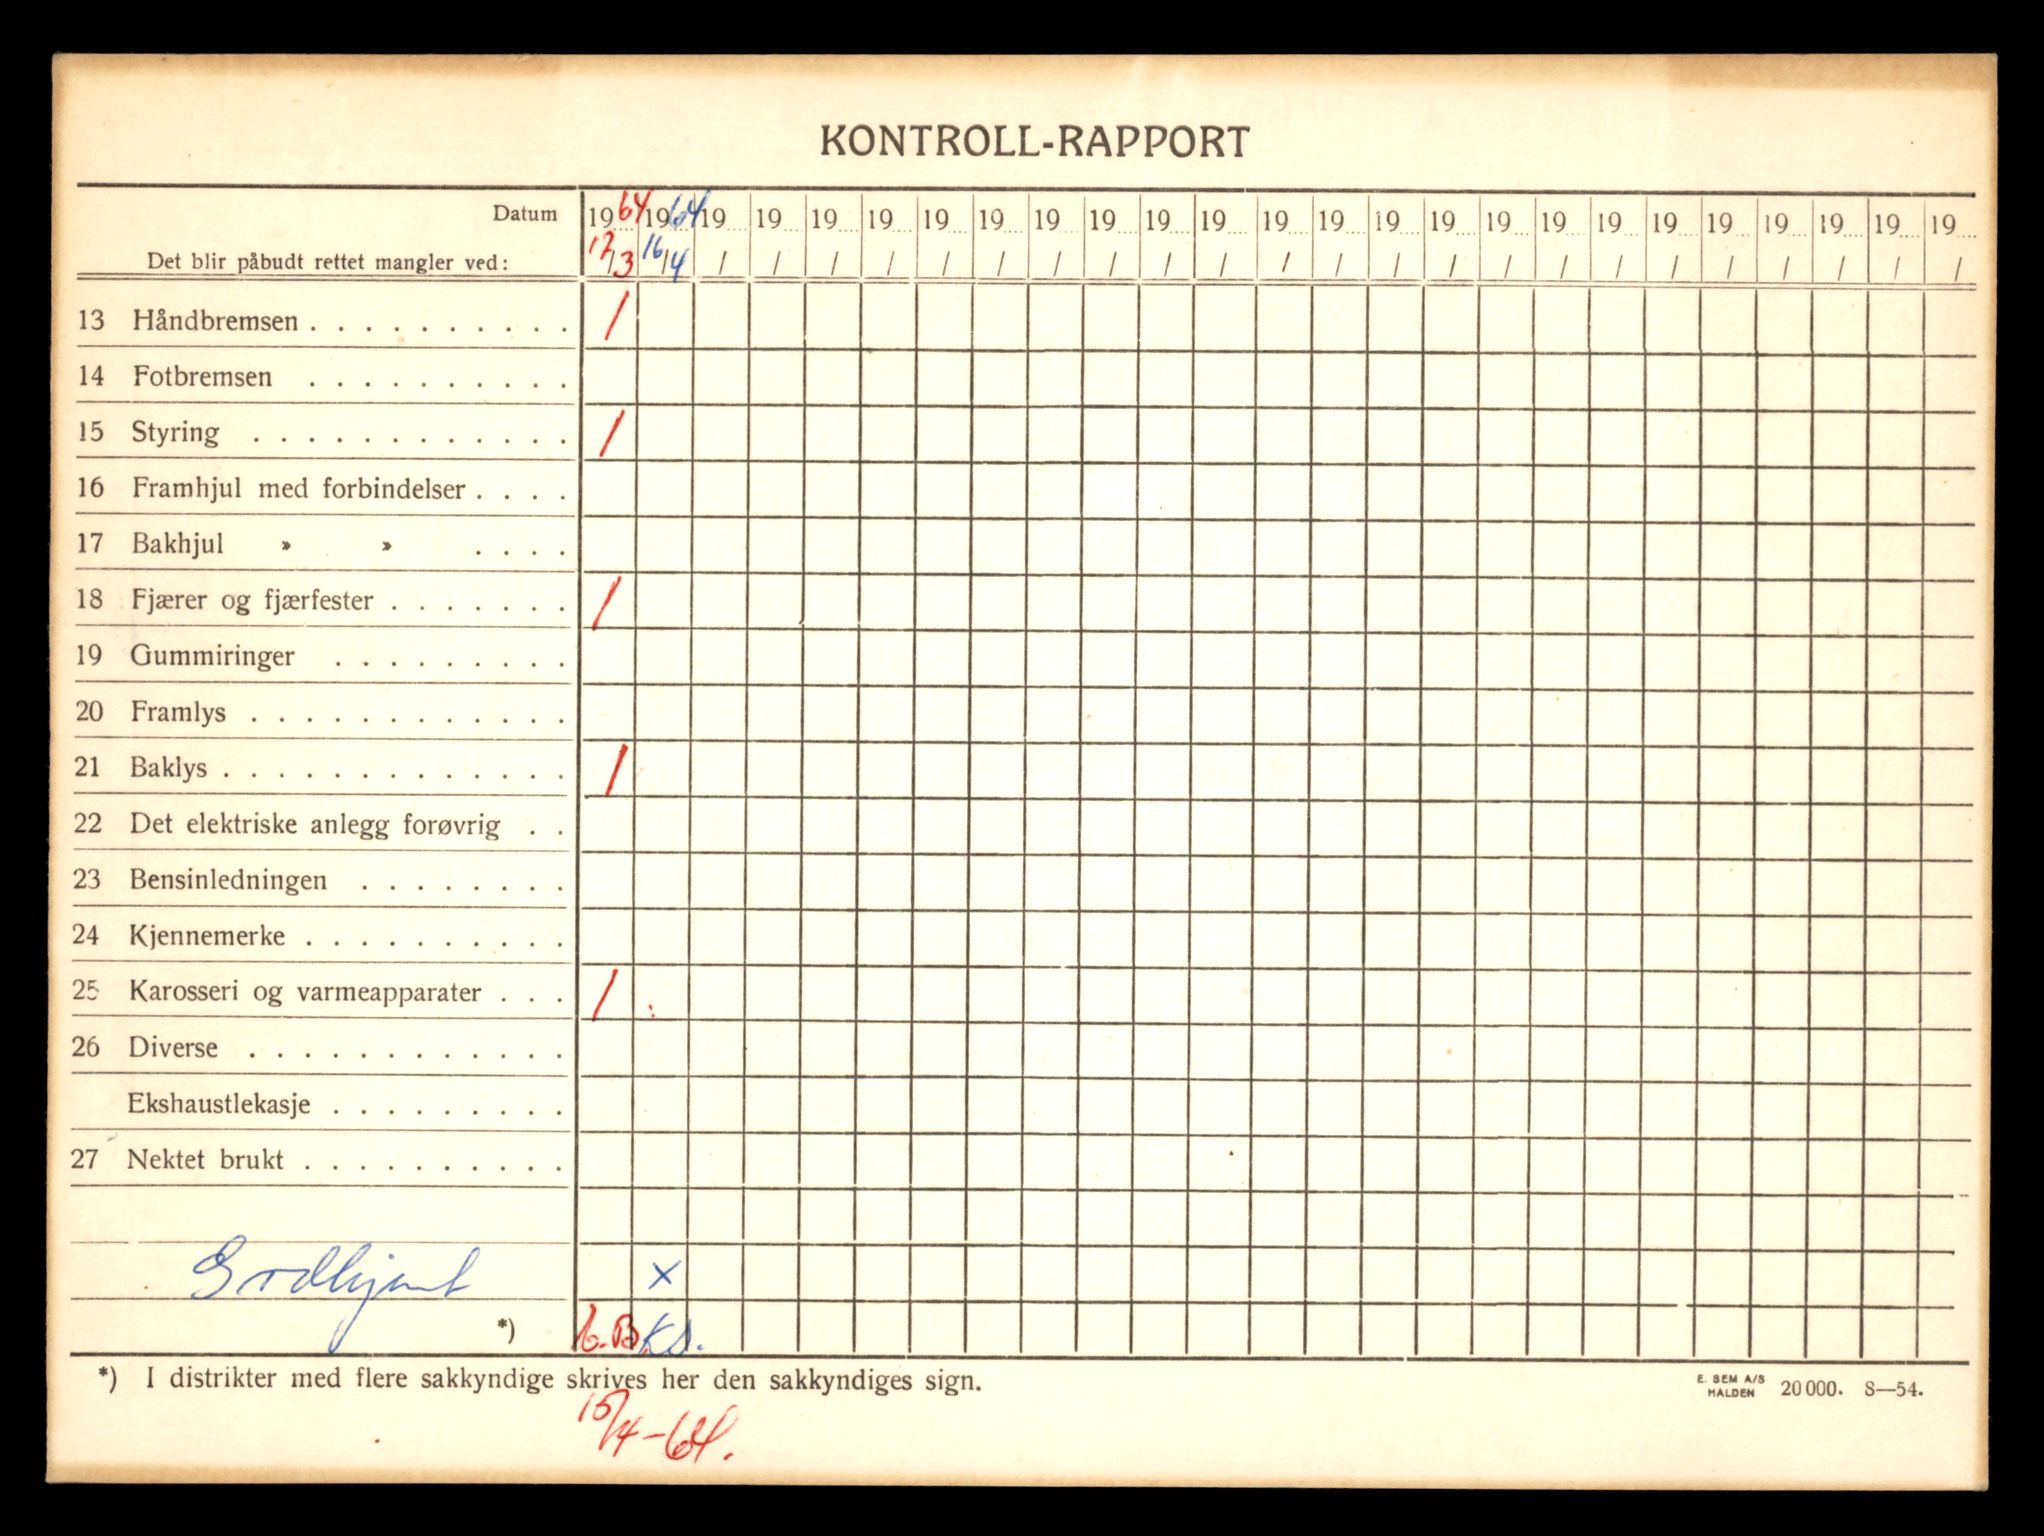 KONTROLL-RAPPORT
Datum 1964 1964 19 19 19 19 19 19 19 19 19 19 19 19 19 19 19 19 19 19 19 19 19 19 19
Det blir påbudt rettet mangler ved: /3 16/4 / / / / / / / / / / / / / / / / / / / / / / /
13 Håndbremsen . . . . . . . . . . /
14 Fotbremsen . . . . . . . . . .
15 Styring . . . . . . . . . . . . /
16 Framhjul med forbindelser . . . .
17 Bakhjul » » . . . .
18 Fjærer og fjærfester . . . . . . . /
19 Gummiringer . . . . . . . . .
20 Framlys . . . . . . . . . . . .
21 Baklys . . . . . . . . . . . . . /
22 Det elektriske anlegg forøvrig . .
23 Bensinledningen . . . . . . . .
24 Kjennemerke . . . . . . . . . .
25 Karosseri og varmeapparater . . . /
26 Diverse . . . . . . . . . . . .
Ekshaustlekasje . . . . . . . . .
27 Nektet brukt . . . . . . . . . .
Godkjent x
*)
*) I distrikter med flere sakkyndige skrives her den sakkyndiges sign.
E. SEM A/S
HALDEN 20 000. 8—54.
15/4-64.